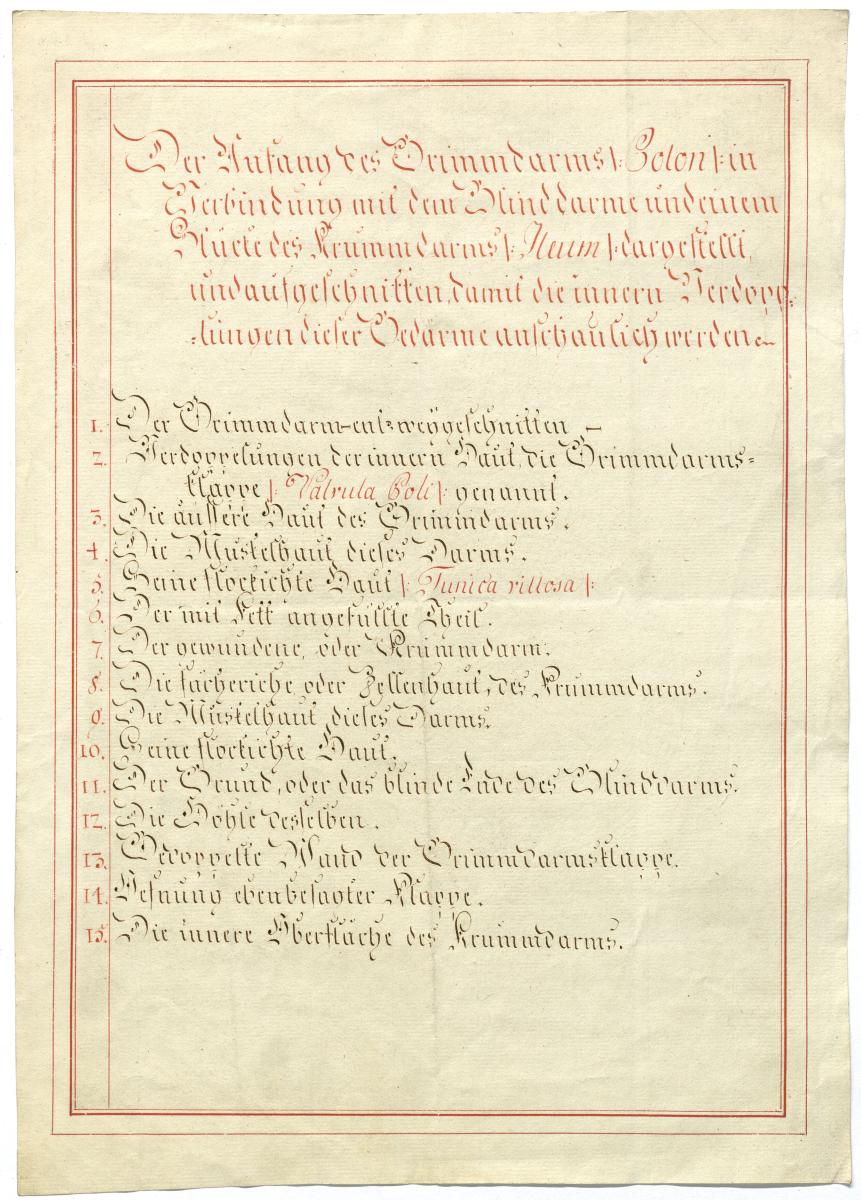 Der Anfang des Grimmdarms /: Colon :/ in
Verbindung mit dem Blinddarme und einem
Stücke des Krummdarms /: Ileum :/ dargestellt,
und aufgeschnitten, damit die innern Verdopp-
-lungen dieser Gedärme anschaulich werden
1. Der Grimmdarm entzweygeschnitten –
2. Verdoppelungen der innern Haut, die Grimmdarms-
klappe /: Valvula Coli :/ genannt.
3. Die äussere Haut des Grimmdarms.
4. Die Muskelhaut dieses Darms.
5. Seine flockichte Haut /: Tunica villosa /:
6. Der mit Fett angefüllte Theil.
7. Der gewundene, oder Krummdarm.
8. Die fächeriche oder Zellenhaut, des Krummdarms.
9. Die Muskelhaut dieses Darms.
10. Seine flockichte Haut.
11. Der Grund, oder das blinde Ende des Blinddarms.
12. Die Höhle desselben.
13. Gedoppelte Wand der Grimmdarmsklappe.
14. Oefnung ebenbesagter Klappe.
15. Die innere Oberfläche des Krummdarms.